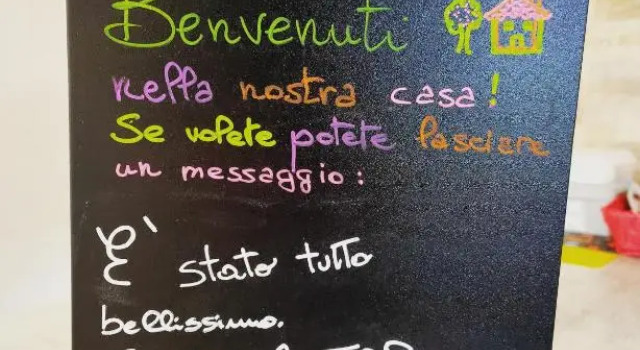 Benvenuti
nella nostra casa!
Se volete potete lasciare
un messaggio:
È stato tutto
bellissimo.